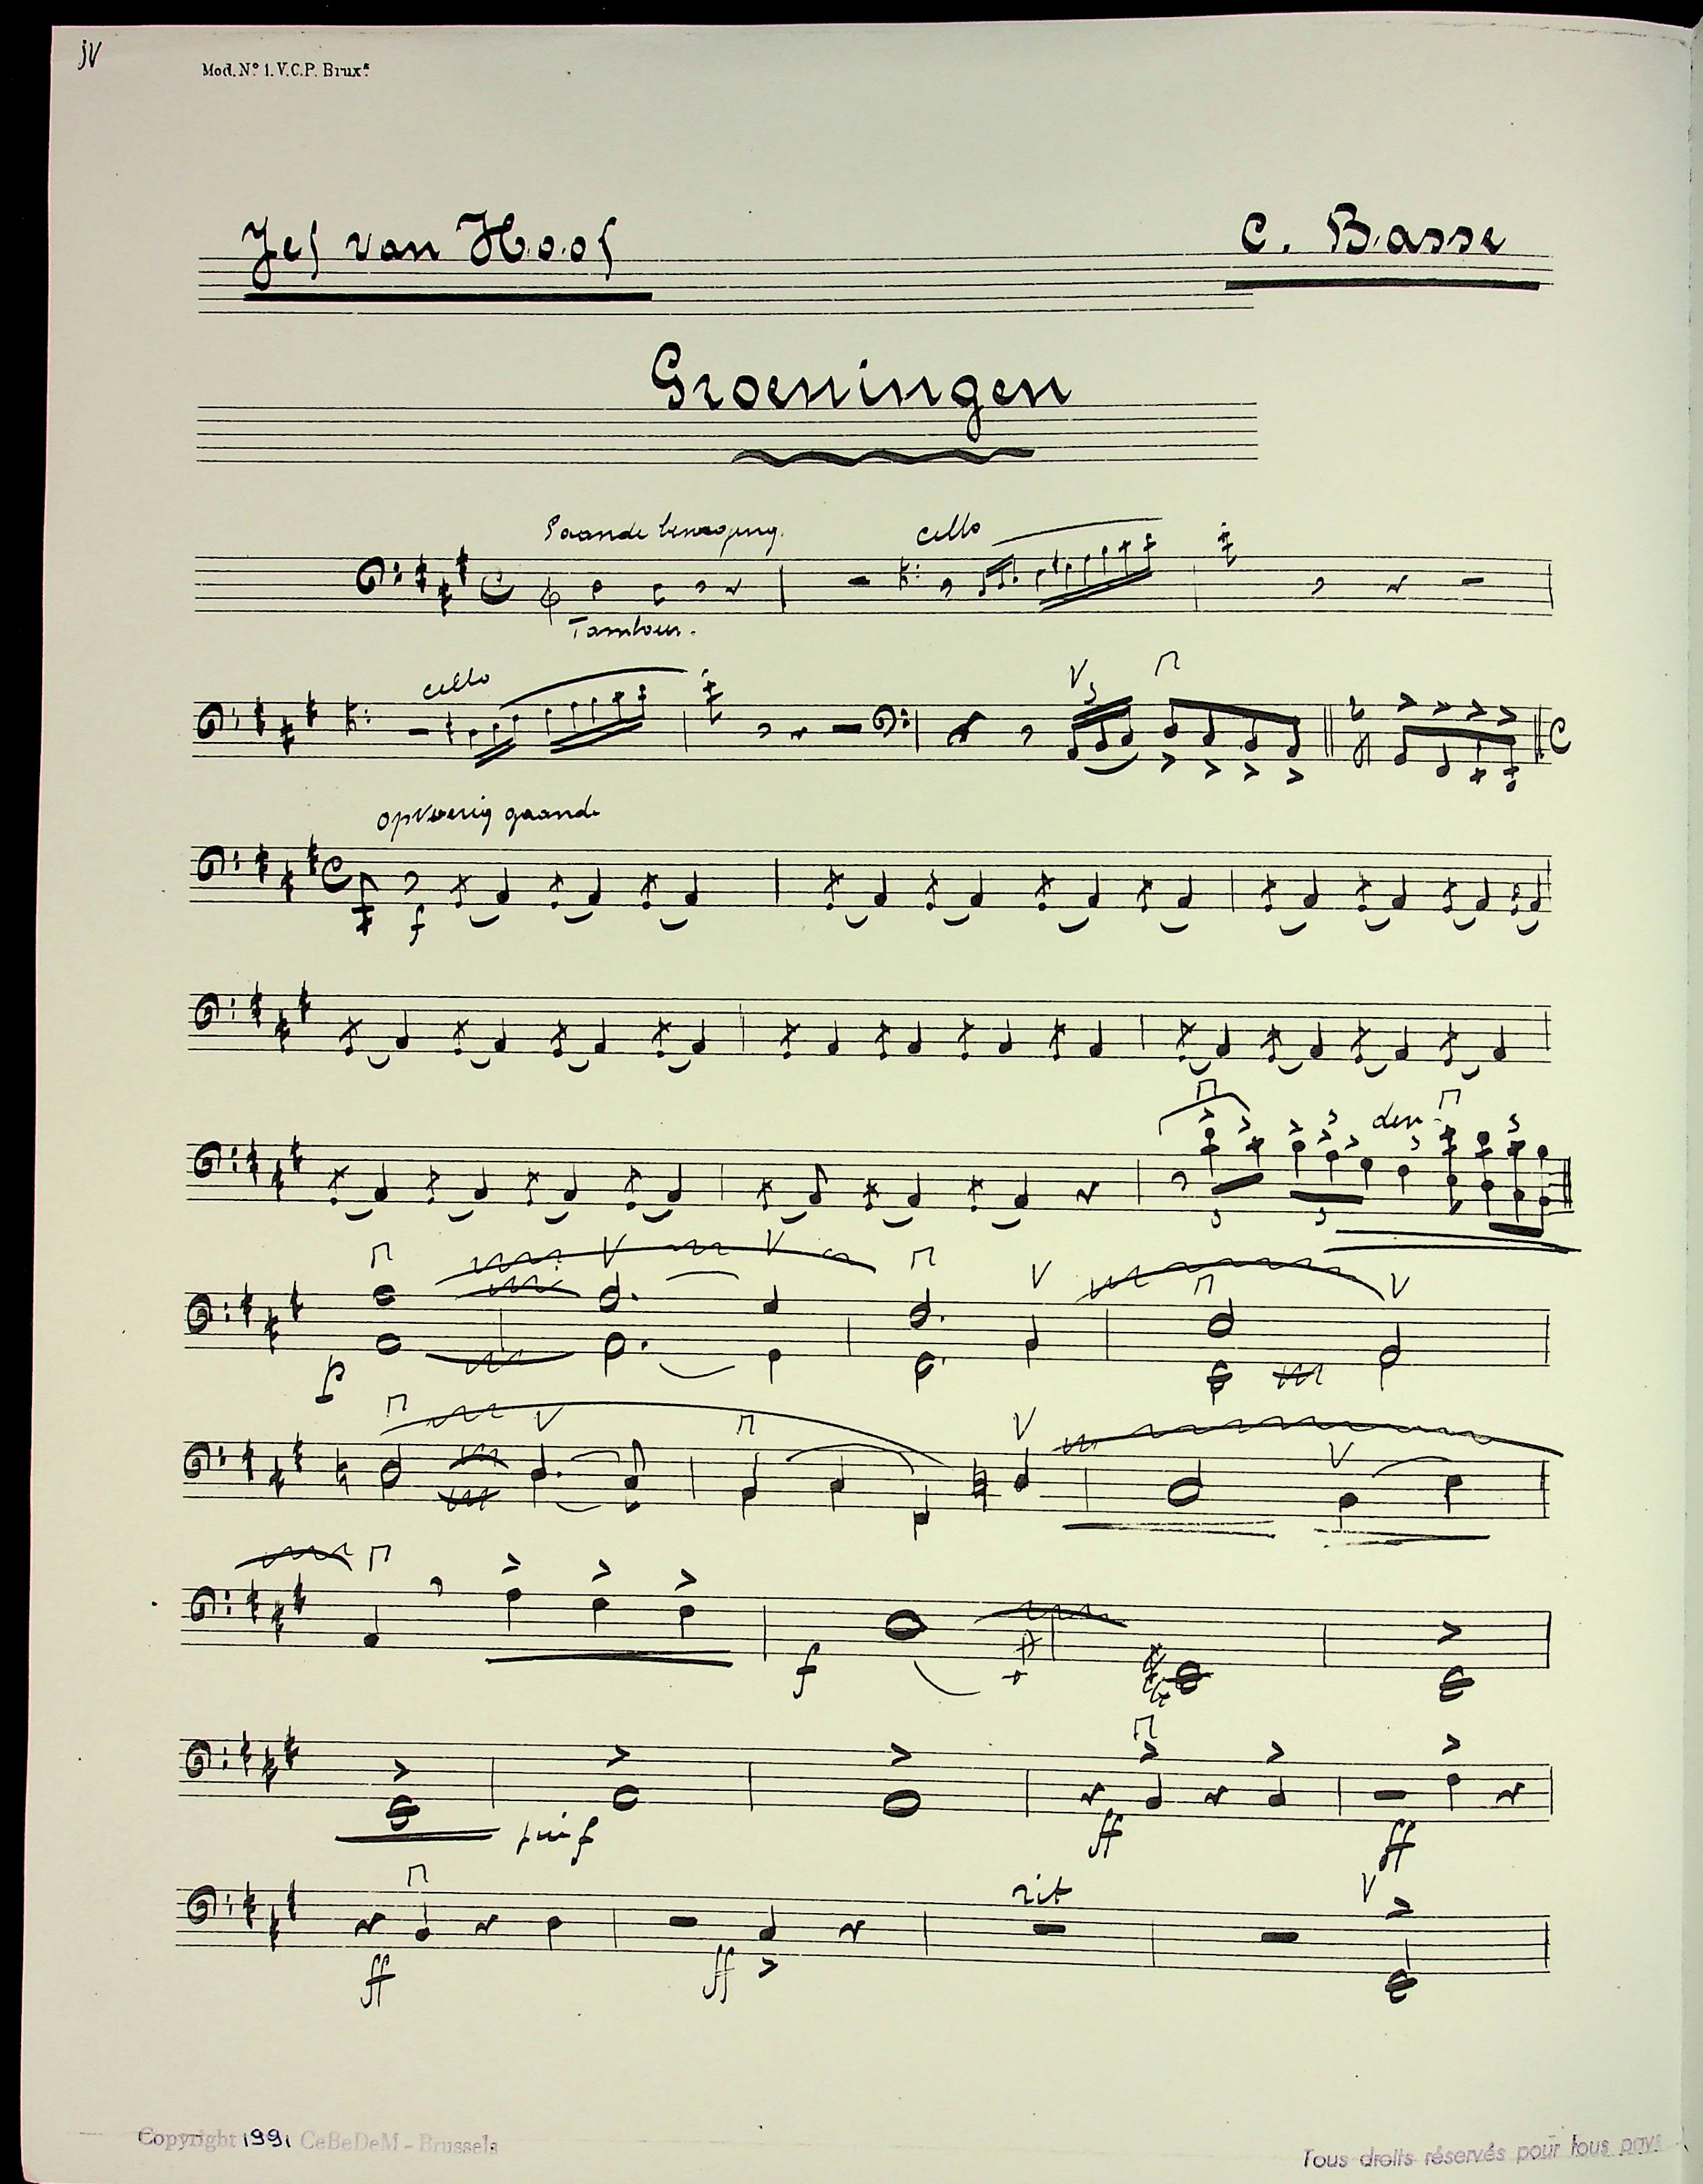 jv
Mod. Nº 1. V.C.P. Brux.s
Jef van Hoof
C. Basse
Groeningen
Gaande beweging.
cello
Tambour.
cello
3
opvoerig gaande
f
3
den
3
3
3
p
f
ff
ff
rit
ff
ff
Copyright 1991 CeBeDeM - Brussels
Tous droits réservés pour tous pays